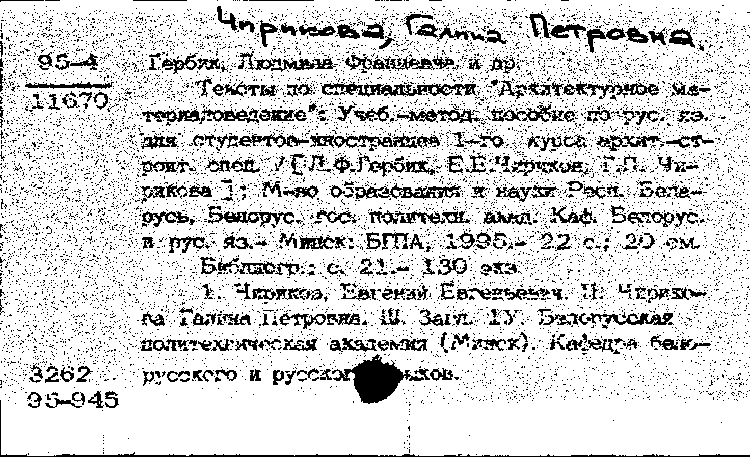 Чирикова, Галина Петровна.
95-4 Гербик, Людмила Францевна и др.
11670 Тексты по специальности "Архитектурное ма-
териаловедение": Учеб.-метод. пособие по рус. яз.
для студентов-иностранцев 1-го курса архит.-ст-
роит. спец. / [Л.Ф.Гербик, Е.Е.Чириков, Г.П. Чи-
рикова]; М-во образования и науки Респ. Бела-
русь, Белорус. гос. политехн. акад. Каф. Белорус.
и рус. яз.- Минск: БГПА, 1995.- 22 с.; 20 см.
Библиогр.: с. 21.- 130 экз.
1. Чириков, Евгений Евгеньевич. II. Чирико-
ва Галина Петровна. III. Загл. IV. Белорусская
политехническая академия (Минск). Кафедра бело-
3262 русского и русского языков.
95-945